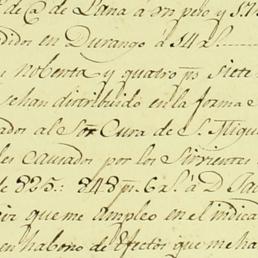 de @ de Lana á
didos en Durango á 14 r.s
nobenta y quatro p.s siete
sehan distribuido en la forma
ados al Sor Cura de S. Migu
les causados por los Sirvientes
de 825: 848 p.s 6 r.s á D.
que me empleo en el indica
en habono de Efectos que me ha